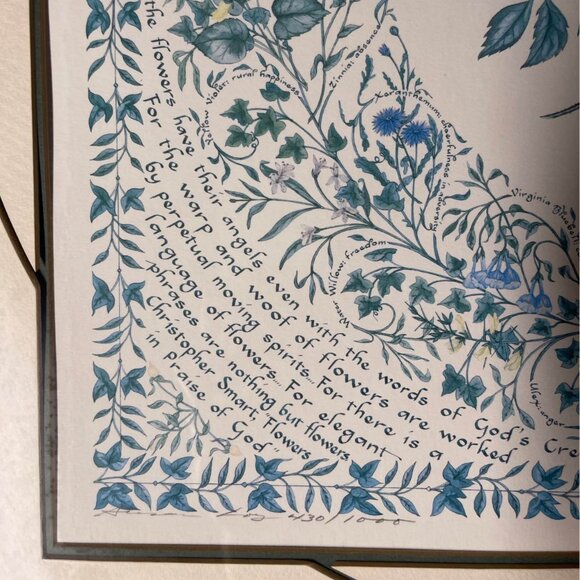 Yellow Violet: rural happiness
Zinnia: absence
Xeranthemum: cheerfulness in adversity
Virginia Bluebell
Water Willow: freedom
Ulex: anger
the flowers have their angels even with the words of God's Cre
For the warp and woof of flowers are worked
by perpetual moving spirits... For there is a
language of flowers... For elegant
phrases are nothing but flowers
Christopher Smart "Flowers
in praise of God"
430/1000